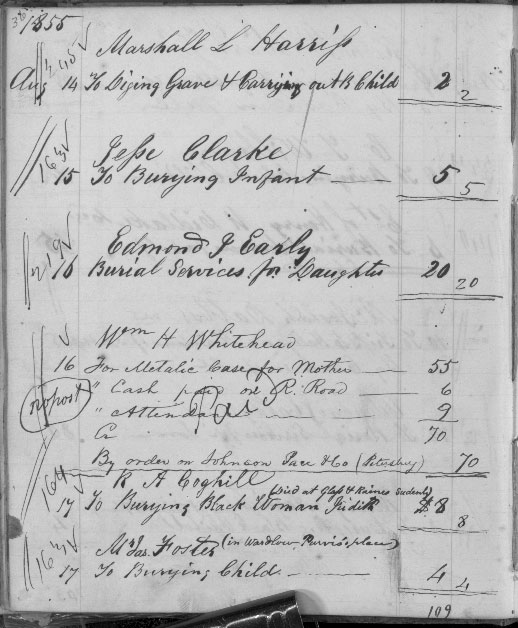 1855
Marshall L Harriss
245
Aug 14 To Diging Grave & Carrying out B Child 2 2
Jesse Clarke
163
15 To Burying Infant 5 5
Edmond J Early
16 Burial Services for Daughter 20 20
Wm H Whitehead
16 For Metalic Case for Mother 55
" Cash paid on R. Road 6
no post " Attendance 9
Cr 70
By order on Johnson Pace & Co (Petersburg) 70
R A Coghill
164 (Died at Glass & Raines
17 To Burying Black Woman Judith $8 8
Mr Jas. Foster (in Wardlow Purvis's place)
163
17 To Burying Child 4 4
109